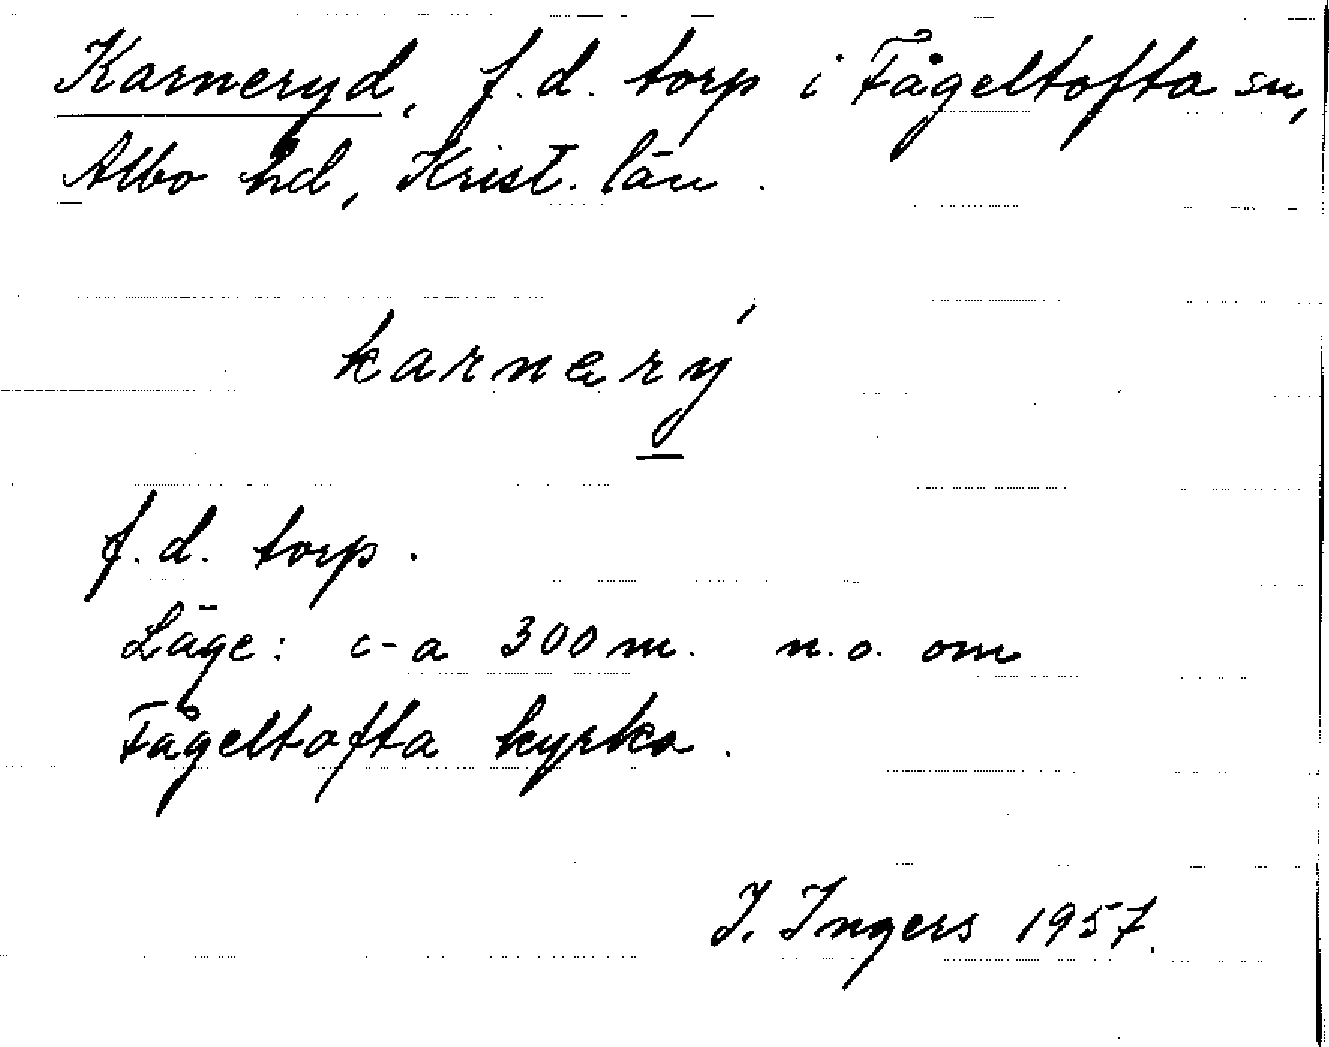 Karneryd, f.d. torp i Fågeltofta sn,
Albo hd, Krist. län.
karnarý
f.d. torp.
Läge: c-a 300 m. n.o. om
Fågeltofta kyrka.
I. Ingers 1957.